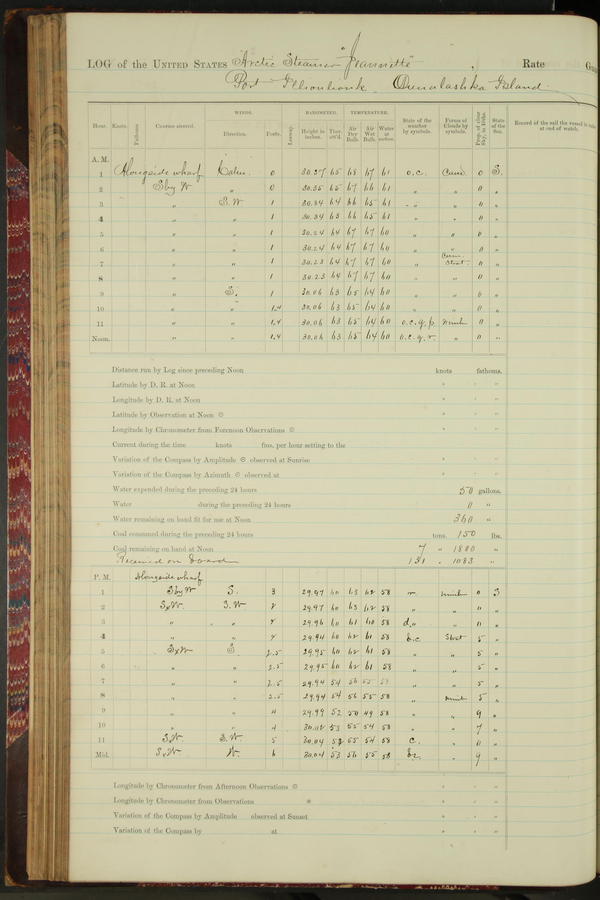 LOG of the UNITED STATES Arctic Steamer "Jeannette", Rate
Port Illiouliouk. Ounalashka Island.
Hour. Knots. Fathoms. Courses steered. WINDS. Direction. Force. Leeway. BAROMETER. Height in inches. Ther. att'd. TEMPERATURE. Air Dry Bulb. Air Wet Bulb. Water at surface. State of the weather by symbols. Forms of Clouds by symbols. Prop. of clear Sky, in 10ths. State of the Sea. Record of the sail the vessel is under at end of watch.
A. M.
1 Alongside wharf Calm. 0 30.37 65 68 67 61 o.c. Cum. 0 S.
2 S by W " 0 30.35 65 67 66 61 " " 0 "
3 " S.W 1 30.34 64 66 65 61 " " " 0 "
4 " " 1 30.34 63 66 65 61 " " 0 "
5 " " 1 30.24 64 67 67 60 " " 0 "
6 " " 1 30.24 64 67 67 60 " " 0 "
7 " " 1 30.23 64 67 67 60 " Cum. Strat. 0 "
8 " " 1 30.23 64 67 67 60 " " 0 "
9 " S. 1 30.06 63 65 64 60 " " 0 "
10 " " 1.4 30.06 63 65 64 60 " " 0 "
11 " " 1.4 30.06 63 65 64 60 o.c.q.p. Nimb 0 "
Noon. " " 1.4 30.06 63 65 64 60 o.c.q.r. " 0 "
Distance run by Log since preceding Noon knots fathoms.
Latitude by D. R. at Noon ° ' "
Longitude by D. R. at Noon ° ' "
Latitude by Observation at Noon ° ' "
Longitude by Chronometer from Forenoon Observations ° ' "
Current during the time knots fms. per hour setting to the
Variation of the Compass by Amplitude observed at Sunrise ° ' "
Variation of the Compass by Azimuth observed at ° ' "
Water expended during the preceding 24 hours 50 gallons.
Water during the preceding 24 hours 0 "
Water remaining on hand fit for use at Noon 360 "
Coal consumed during the preceding 24 hours tons. 150 lbs.
Coal remaining on hand at Noon 7 " 1880 "
Received on board 131 " 1083 "
P. M. Alongside wharf
1 S by W S. 3 29.97 60 63 62 58 r. Nimb 0 S
2 SxW. S.W 2 29.97 60 63 62 58 " " 0 "
3 " " " 4 29.96 60 61 60 58 d. " " 0 "
4 " " 4 29.94 60 62 61 58 b.c. Strat 5 "
5 SxW S. 2.5 29.95 60 62 61 58 " " 5 "
6 " " 2.5 29.95 60 62 61 58 " " 5 "
7 " " 2.5 29.94 54 56 55 58 " " 5 "
8 " " 2.5 29.94 54 56 55 58 " Nimb 5 "
9 " " 4 29.99 52 50 49 58 " " 9 "
10 " " 4 30.02 53 55 54 58 " " 7 "
11 S.W. S.W. 5 30.04 53 55 54 58 c. " 0 "
Mid. SxW W. 6 30.04 53 56 55 58 " 9 "
Longitude by Chronometer from Afternoon Observations ° ' "
Longitude by Chronometer from Observations ° ' "
Variation of the Compass by Amplitude observed at Sunset ° ' "
Variation of the Compass by at ° ' "